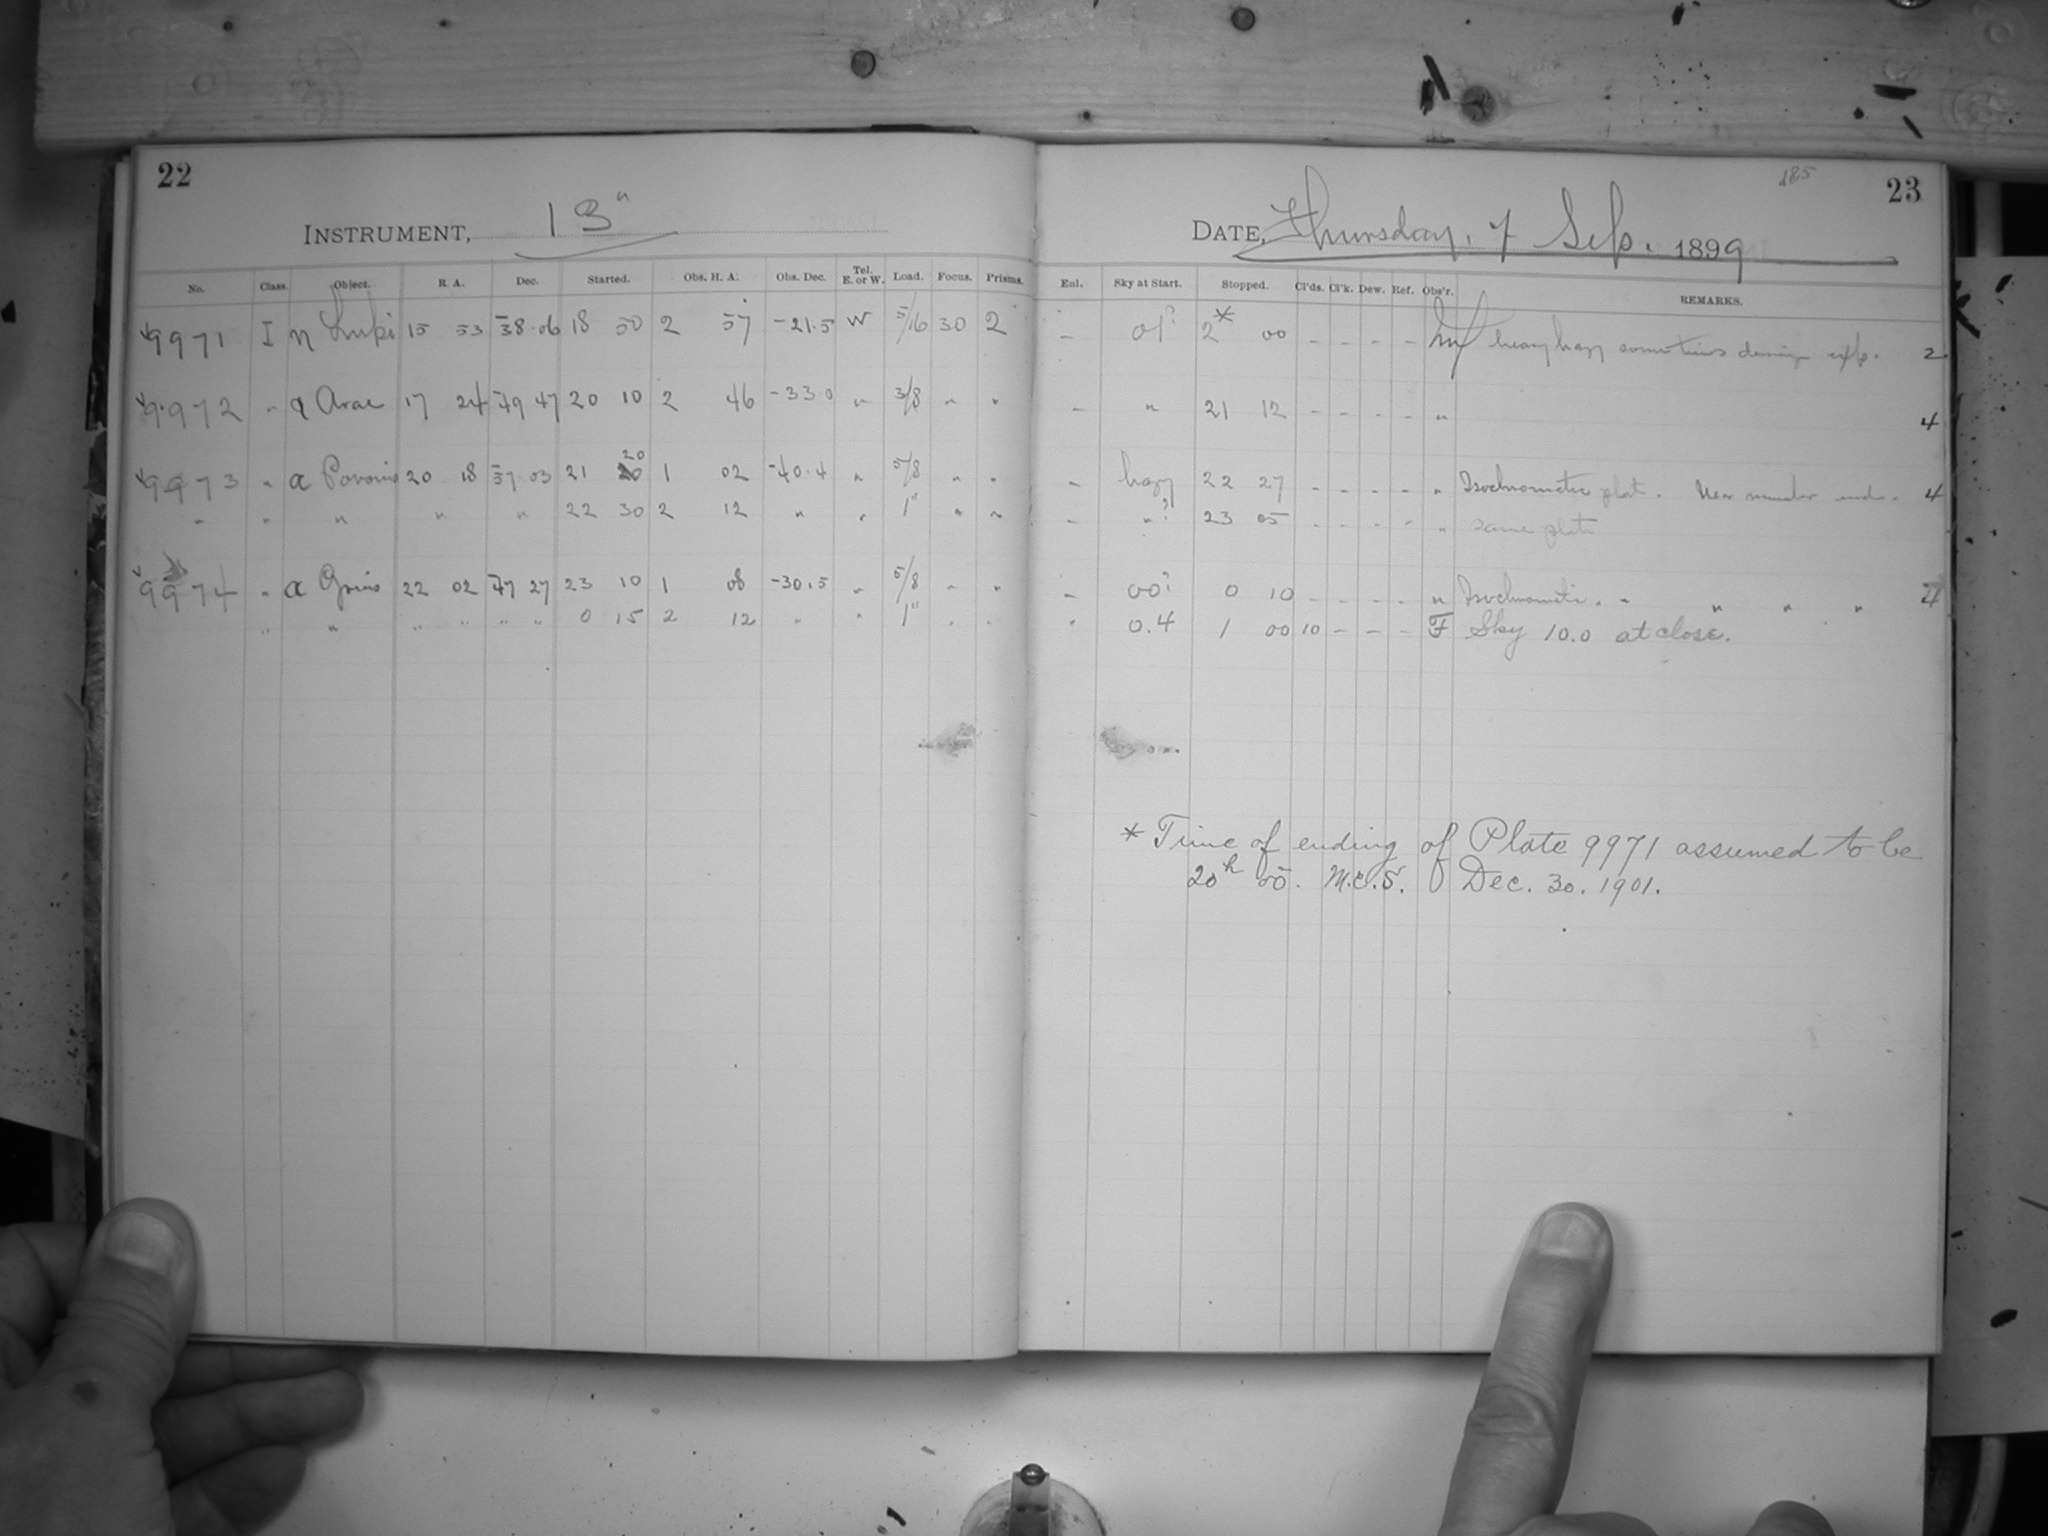 22
INSTRUMENT, 13"
No. Class. Object. R. A. Dec. Started. Obs. H. A. Obs. Dec. Tel. E. or W. Load. Focus. Prisms.
9971 I η Lupi 15 53 -38.06 18 50 2 57 -21.5 W 5/16 30 2
9972 " α Arae 17 24 -49 47 20 10 2 46 -33.0 " 3/8 " "
9973 " α Pavonis 20 18 -57.03 21 20 1 02 -40.4 " 5/8 " "
" " " " " 22 30 2 12 " " 1" " "
9974 " α Gruis 22 02 -47 27 23 10 1 08 -30.5 " 5/8 " "
" " " " " " 0 15 2 12 " " 1" " "
185
23
DATE, Thursday, 7 Sep. 1899
Eul. Sky at Start. Stopped. Cl'ds. Cl'k. Dew. Ref. Obs'r. REMARKS.
- 01? 2* 00 - - - - heavy hazy sometimes during exp. 2
- " 21 12 - - - - " 4
- hazy 22 27 - - - - " Isochromatic plat. Near number end. 4
- "? 23 05 - - - - " same plate
- 00? 0 10 - - - - " Isochromatic. " " " " 4
" 0.4 1 00 10 - - - F Sky 10.0 at close.
* Time of ending of Plate 9971 assumed to be
20h 00. M.C.S. Dec. 30. 1901.